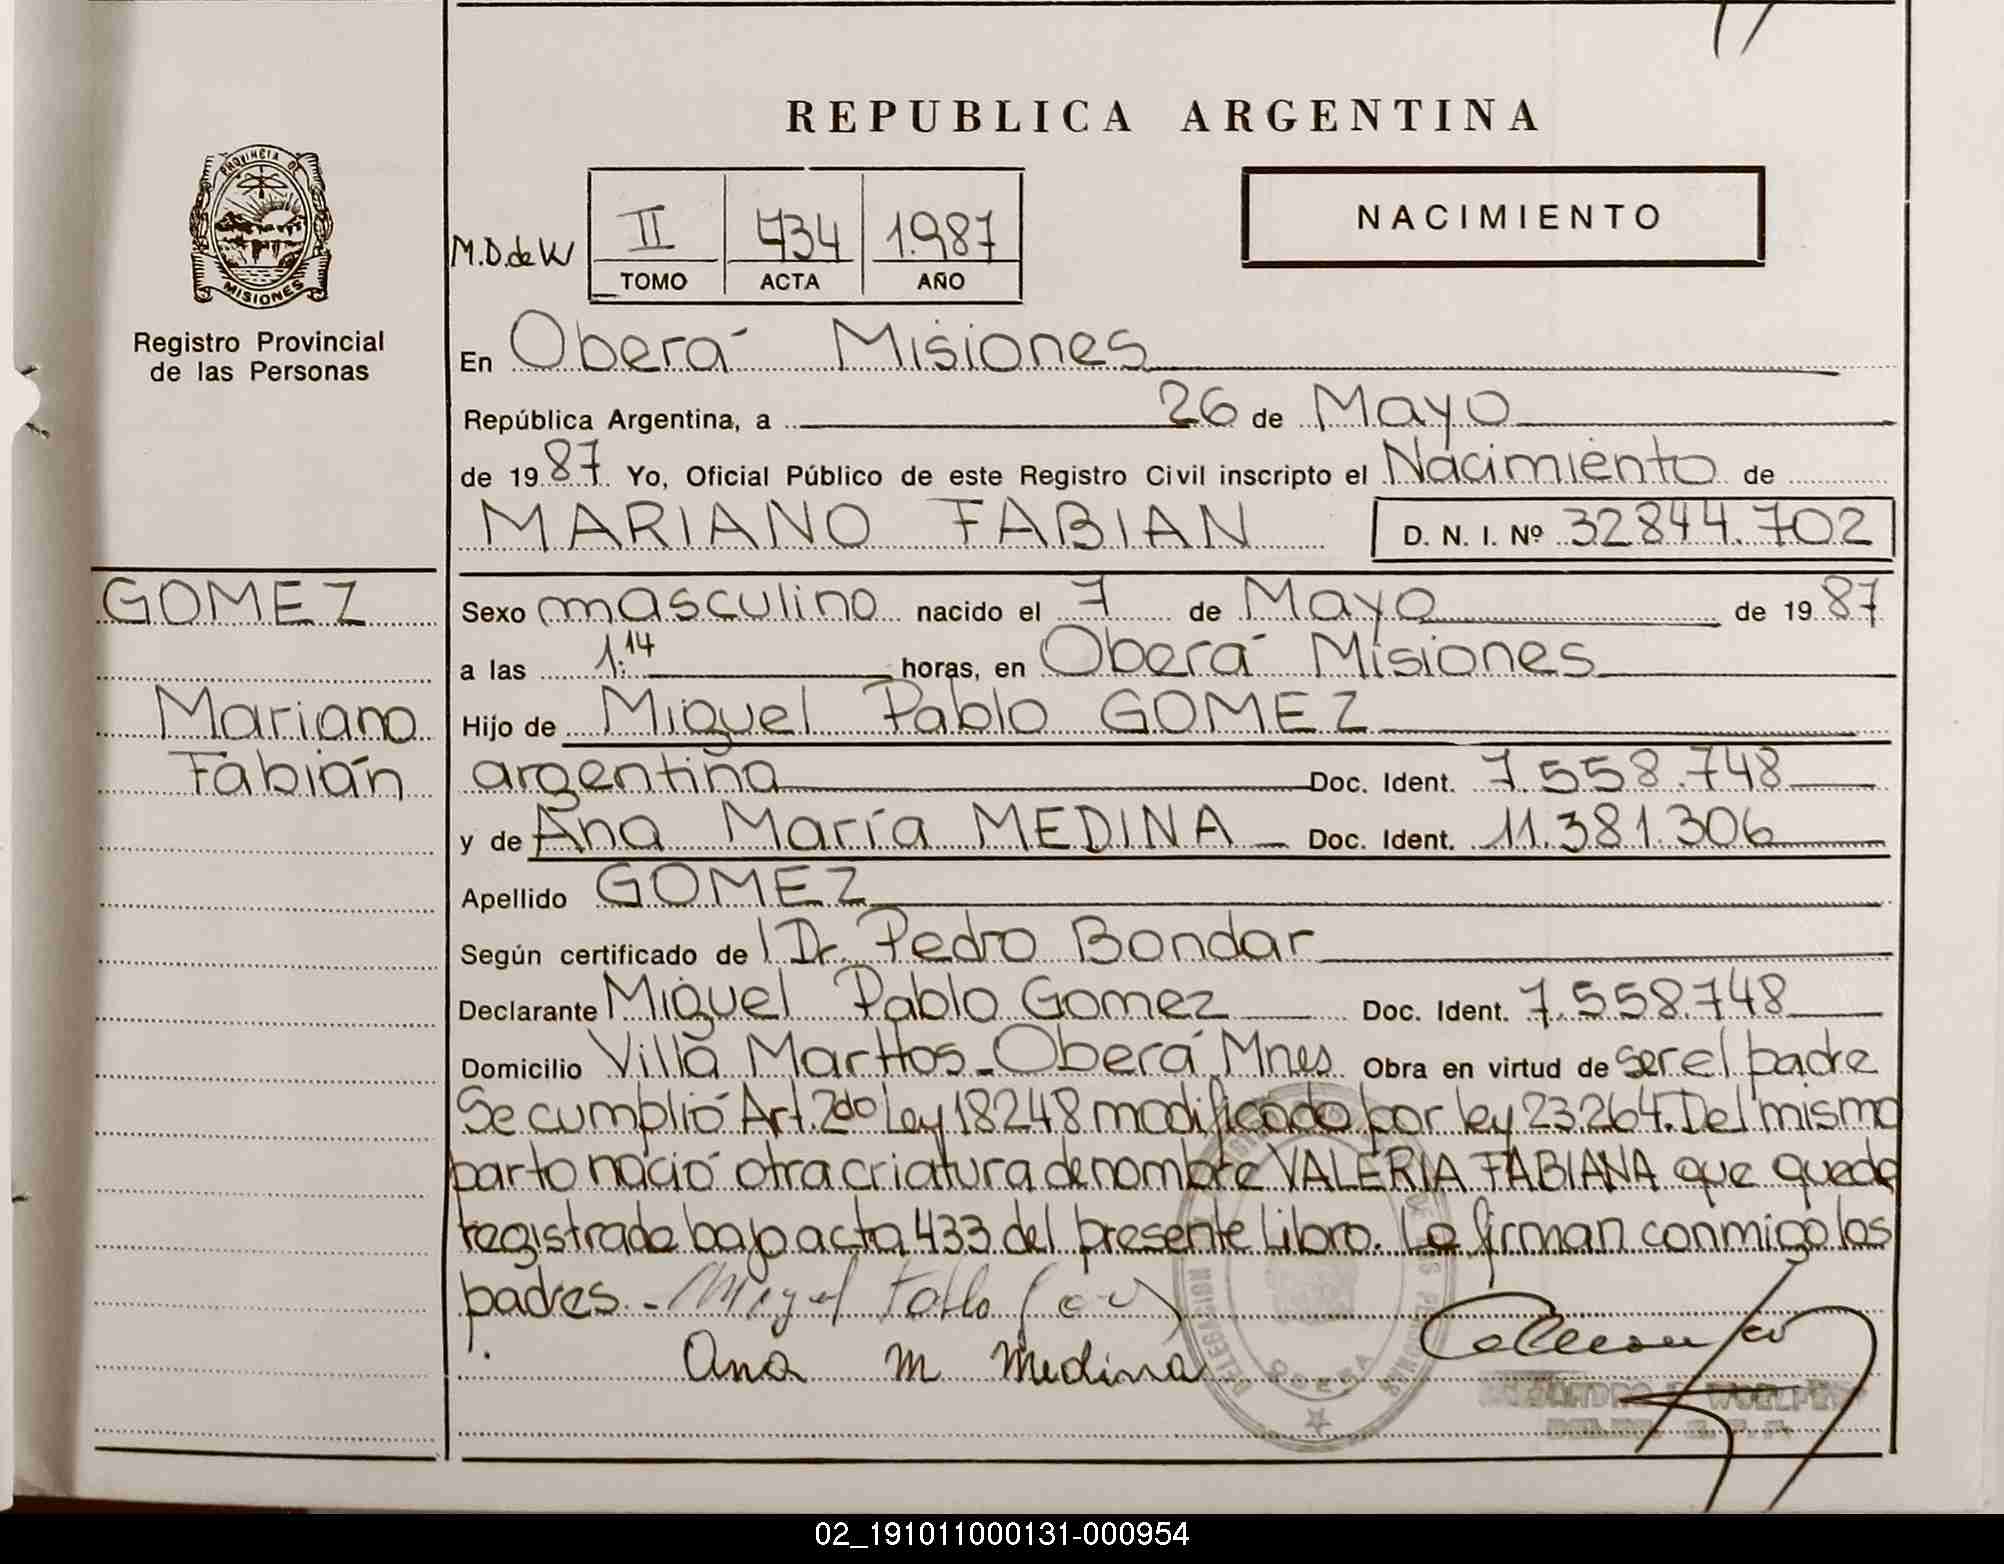 REPUBLICA ARGENTINA
PROVINCIA DE
MISIONES
Registro Provincial
de las Personas
M.D.de W
II 434 1.987
TOMO ACTA AÑO
NACIMIENTO
En Oberá Misiones
República Argentina, a 26 de Mayo
de 1987 Yo, Oficial Público de este Registro Civil inscripto el Nacimiento de
MARIANO FABIAN D. N. I. Nº 32844.702
GOMEZ
Mariano
Fabián
Sexo masculino nacido el 7 de Mayo de 1987
a las 1:14 horas, en Oberá Misiones
Hijo de Miguel Pablo GOMEZ
argentina Doc. Ident. 7.558.748
y de Ana María MEDINA Doc. Ident. 11.381.306
Apellido GOMEZ
Según certificado de Dr. Pedro Bondar
Declarante Miguel Pablo Gomez Doc. Ident. 7.558.748
Domicilio Villa Martos - Oberá Mnes Obra en virtud de ser el padre
Se cumplió Art. 2do Ley 18248 modificado por ley 23.264. Del mismo
parto nació otra criatura de nombre VALERIA FABIANA que queda
registrada bajo acta 433 del presente Libro. La firman conmigo los
padres.-
Ana M Medina
OBERA
02_191011000131-000954